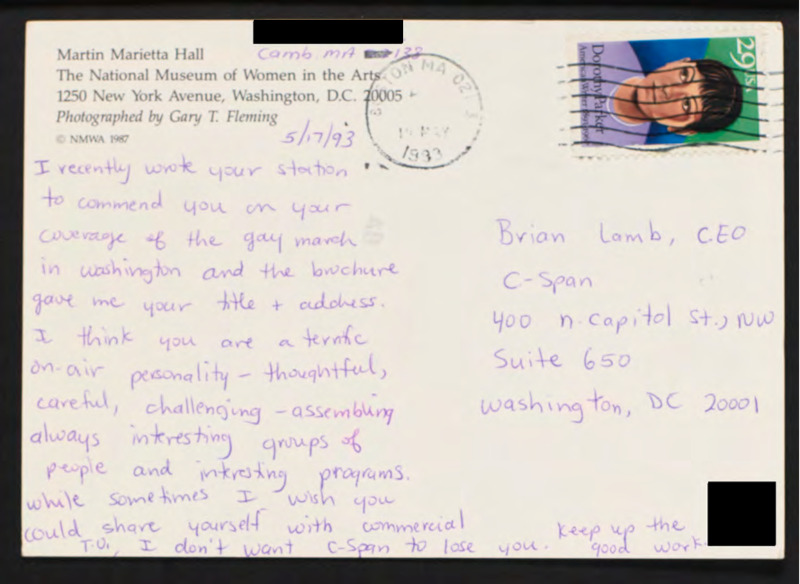 Martin Marietta Hall
Camb. MA 138
The National Museum of Women in the Arts
1250 New York Avenue, Washington, D.C. 20005
Photographed by Gary T. Fleming
© NMWA 1987
5/17/93
MA
1993
29 USA
Dorothy Parker
American Writer
I recently wrote your station
to commend you on your
coverage of the gay march
in washington and the brochure
gave me your title + address.
I think you are a terrific
on-air personality - thoughtful,
careful, challenging - assembling
always interesting groups of
people and interesting programs.
while sometimes I wish you
could share yourself with commercial
T.V., I don't want C-Span to lose you.
Keep up the
good work.
Brian Lamb, CEO
C-Span
400 n. Capitol St., NW
Suite 650
Washington, DC 20001